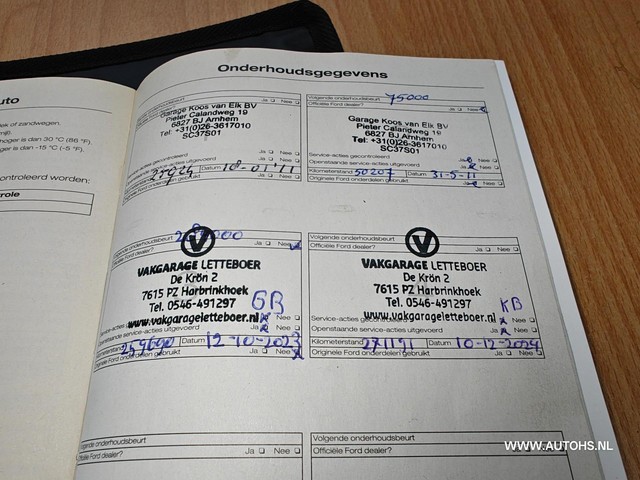 Onderhoudsgegevens
uto
ek of zandwegen.
mijl.
hoger is dan 30 °C (86 °F).
ger is dan -15 °C (-5 °F).
controleerd worden:
role
Ja Nee
Garage Koos van Elk BV
Pieter Calandweg 19
6827 BJ Arnhem
Tel: +31(0)26-3617010
SC37S01
Service-acties gecontroleerd
Openstaande service-acties uitgevoerd
Datum 18-01-'11
Originele Ford onderdelen gebruikt
Volgende onderhoudsbeurt 75000
Officiële Ford dealer? Ja Nee
Garage Koos van Elk BV
Pieter Calandweg 19
6827 BJ Arnhem
Tel: +31(0)26-3617010
SC37S01
Service-acties gecontroleerd
Openstaande service-acties uitgevoerd
Kilometerstand 50207 Datum 31-5-11
Originele Ford onderdelen gebruikt
Volgende onderhoudsbeurt
Officiële Ford dealer? Ja Nee
V
VAKGARAGE LETTEBOER
De Krön 2
7615 PZ Harbrinkhoek
Tel. 0546-491297
www.vakgarageletteboer.nl
GB
Openstaande service-acties uitgevoerd Ja Nee
Kilometerstand Datum 12-10-2023
Originele Ford onderdelen gebruikt
Volgende onderhoudsbeurt
Officiële Ford dealer? Ja Nee
V
VAKGARAGE LETTEBOER
De Krön 2
7615 PZ Harbrinkhoek
Tel. 0546-491297
www.vakgarageletteboer.nl
KB
Openstaande service-acties uitgevoerd Ja Nee
Kilometerstand 271191 Datum 10-12-2024
Originele Ford onderdelen gebruikt Ja Nee
Volgende onderhoudsbeurt
Officiële Ford dealer? Ja Nee
Volgende onderhoudsbeurt
Officiële Ford dealer? Ja Nee
WWW.AUTOHS.NL